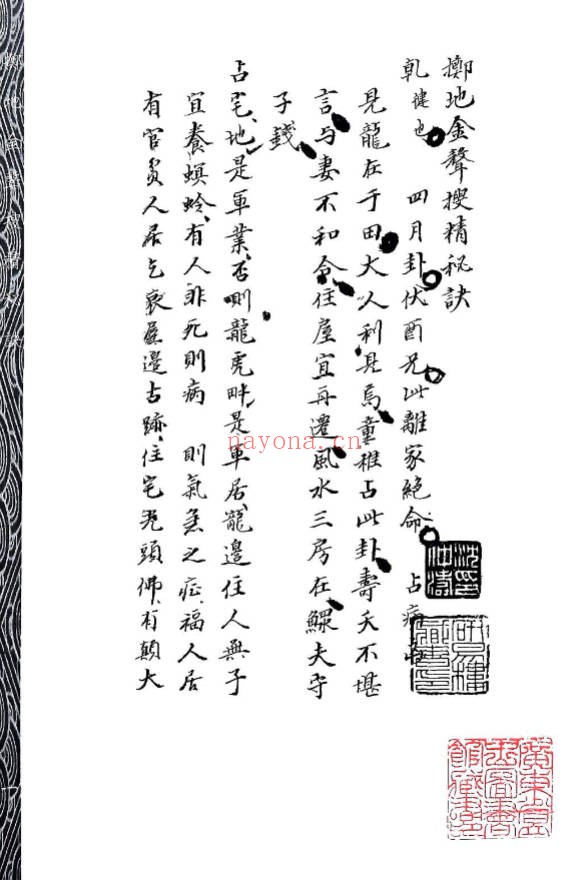 擲地金聲搜精秘訣
乾健也 四月卦伏酉兄此離家絕命 占病
見龍在于田大人利見焉童稚占此卦壽夭不堪
言与妻不和合住屋宜再遷風水三房在鰥夫守
子錢
占宅地是軍業否則龍虎畔是軍居龍邊住人無子
宜養螟蛉有人非死則病 則氣急之症福人居
有官員人居之衰 邊古跡住宅 頭佛有顛大
nayona.cn